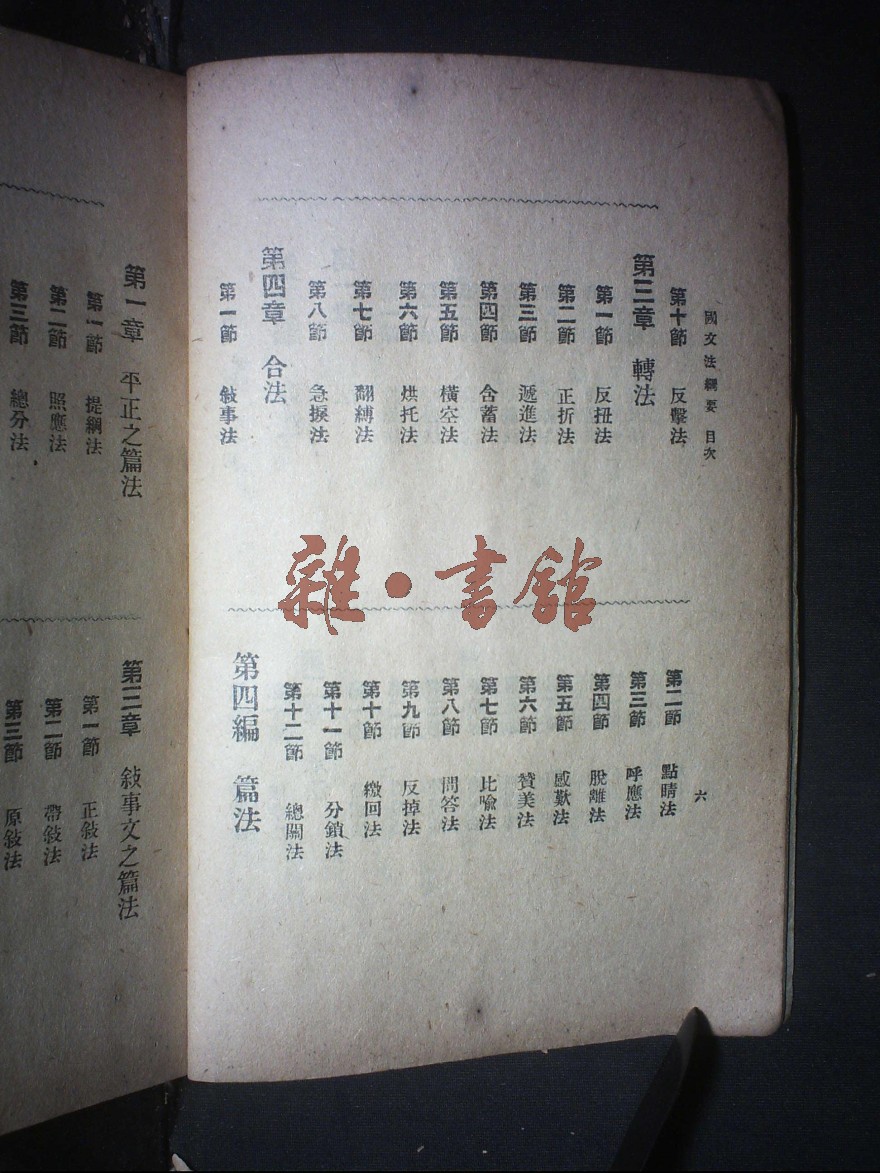 國文法綱要 目次
六
第十節 反擊法
第三章 轉法
第一節 反扭法
第二節 正折法
第三節 遞進法
第四節 含蓄法
第五節 橫空法
第六節 烘托法
第七節 翻縛法
第八節 急捩法
第四章 合法
第一節 敍事法
第二節 點睛法
第三節 呼應法
第四節 脫離法
第五節 感歎法
第六節 贊美法
第七節 比喩法
第八節 問答法
第九節 反掉法
第十節 繳回法
第十一節 分鎖法
第十二節 總關法
第四編 篇法
第一章 平正之篇法
第一節 提綱法
第二節 照應法
第三節 總分法
第三章 敍事文之篇法
第一節 正敍法
第二節 帶敍法
第三節 原敍法
雜·書館